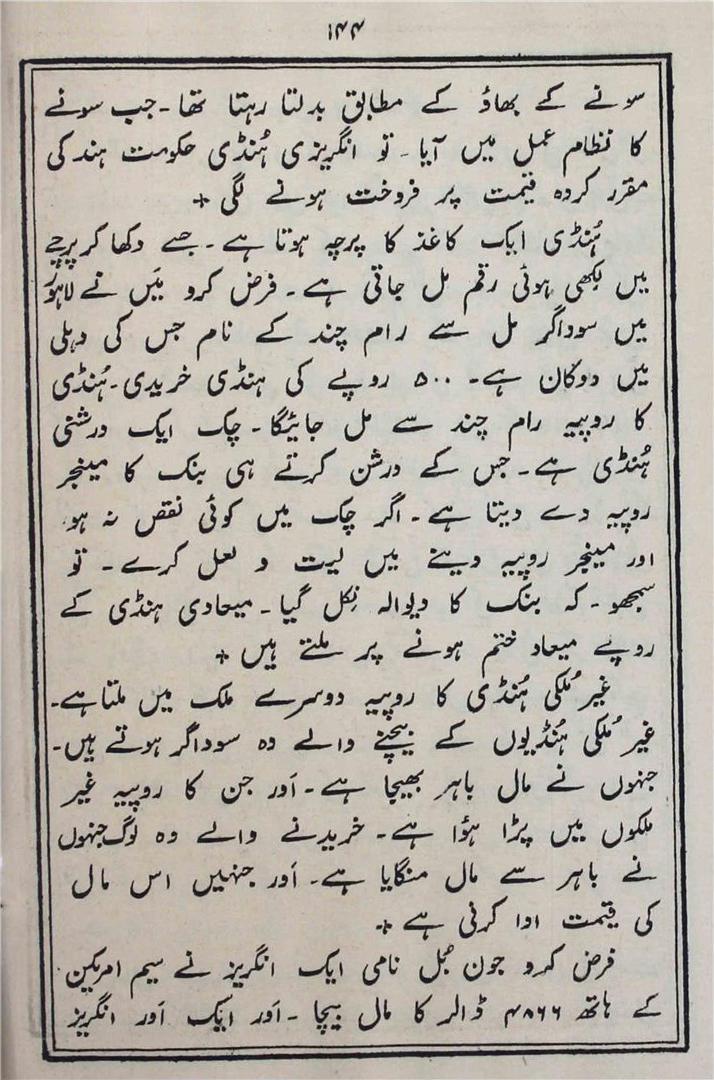 ۱۴۴
سونے کے بھاؤ کے مطابق بدلتا رہتا تھا۔ جب سونے
کا نظام عمل میں آیا۔ تو انگریزی ہُنڈی حکومت ہند کی
مقرر کردہ قیمت پر فروخت ہونے لگی +
ہُنڈی ایک کاغذ کا پرچہ ہوتا ہے۔ جسے دکھا کر پرچے
میں لکھی ہوئی رقم مل جاتی ہے۔ فرض کرو مَیں نے لاہور
میں سوداگر مل سے رام چند کے نام جس کی دہلی
میں دوکان ہے۔ ۵۰۰ روپے کی ہنڈی خریدی۔ ہُنڈی
کا روپیہ رام چند سے مل جائیگا۔ چک ایک درشنی
ہُنڈی ہے۔ جس کے درشن کرتے ہی بنک کا مینجر
روپیہ دے دیتا ہے۔ اگر چک میں کوئی نقص نہ ہو
اور مینجر روپیہ دینے میں لیت و لعل کرے۔ تو
سمجھو۔ کہ بنک کا دیوالہ نِکل گیا۔ میعادی ہنڈی کے
روپے میعاد ختم ہونے پر ملتے ہیں +
غیر مُلکی ہُنڈی کا روپیہ دوسرے ملک میں ملتا ہے۔
غیر مُلکی ہُنڈیوں کے بیچنے والے وہ سوداگر ہوتے ہیں۔
جنہوں نے مال باہر بھیجا ہے۔ اَور جن کا روپیہ غیر
ملکوں میں پڑا ہؤا ہے۔ خریدنے والے وہ لوگ جنہوں
نے باہر سے مال منگایا ہے۔ اَور جنہیں اس مال
کی قیمت ادا کرنی ہے +
فرض کرو جون بُل نامی ایک انگریز نے سیم امریکین
کے ہاتھ ۴۸۶۶ ڈالر کا مال بیچا۔ اَور ایک اَور انگریز